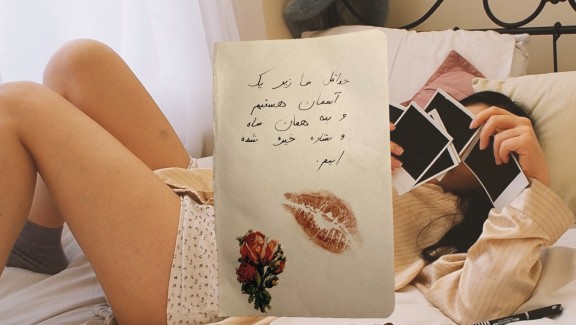 حداقل ما زیر یک
آسمان هستیم
و به همان ماه
و ستاره خیره شده
ایم.